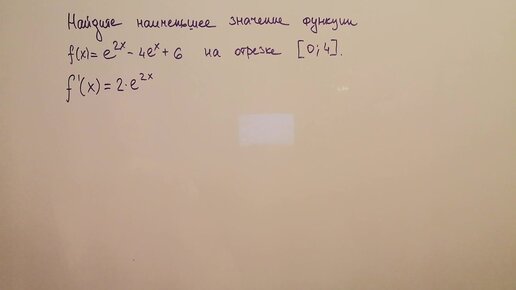 Найдите наименьшее значение функции
f(x)= e^{2x} - 4e^x + 6 на отрезке [0;4].
f'(x) = 2·e^{2x}